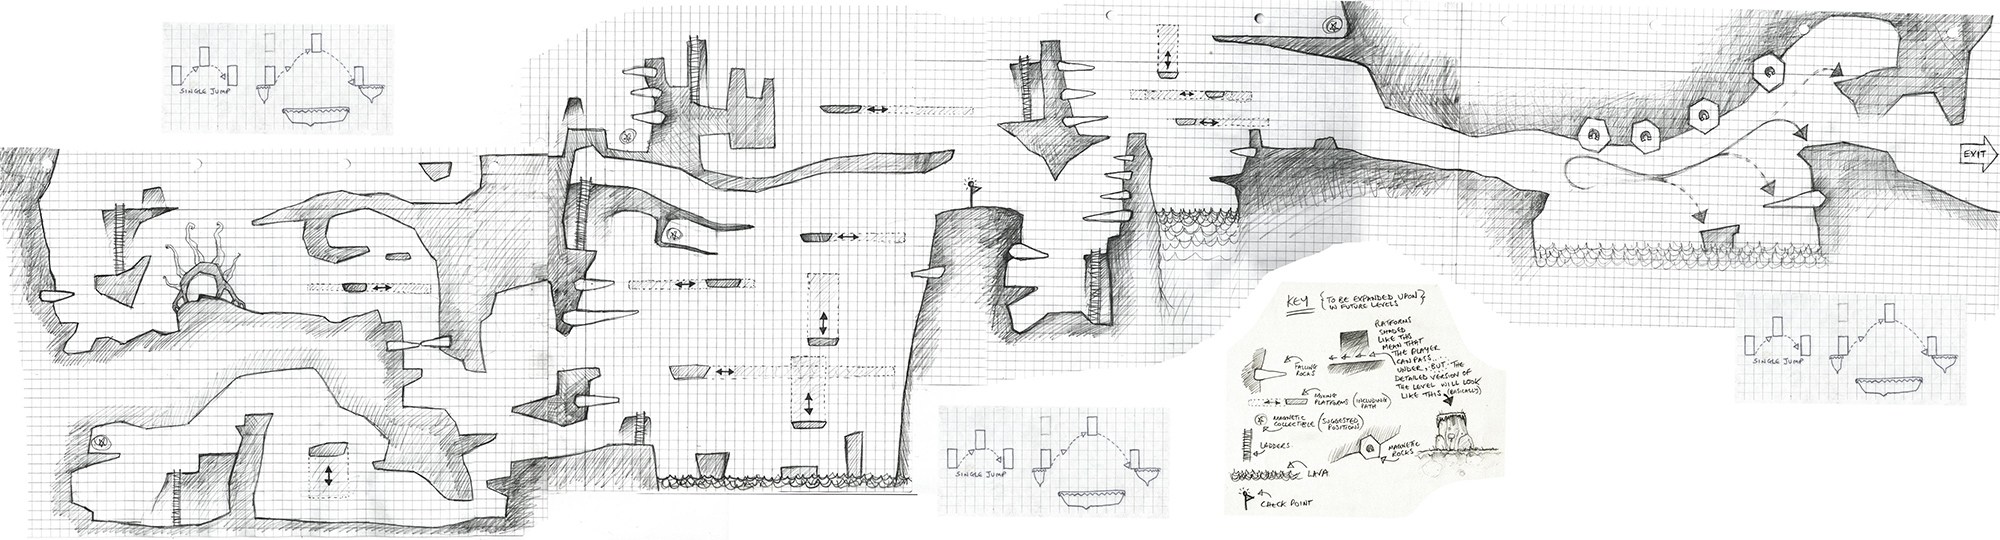 SINGLE JUMP
EXIT
KEY {TO BE EXPANDED UPON}
IN FUTURE LEVELS
PLATFORMS
SHADED
LIKE THIS
MEAN THAT
THE PLAYER
CAN PASS
UNDER, BUT THE
DETAILED VERSION OF
THE LEVEL WILL LOOK
LIKE THIS (BASICALLY)
FALLING
ROCKS
MOVING
PLATFORMS (INCLUDING
PATH)
MAGNETIC
COLLECTIBLE (SUGGESTED
POSITION)
LADDERS
MAGNETIC
ROCKS
LAVA
CHECK POINT
SINGLE JUMP
SINGLE JUMP